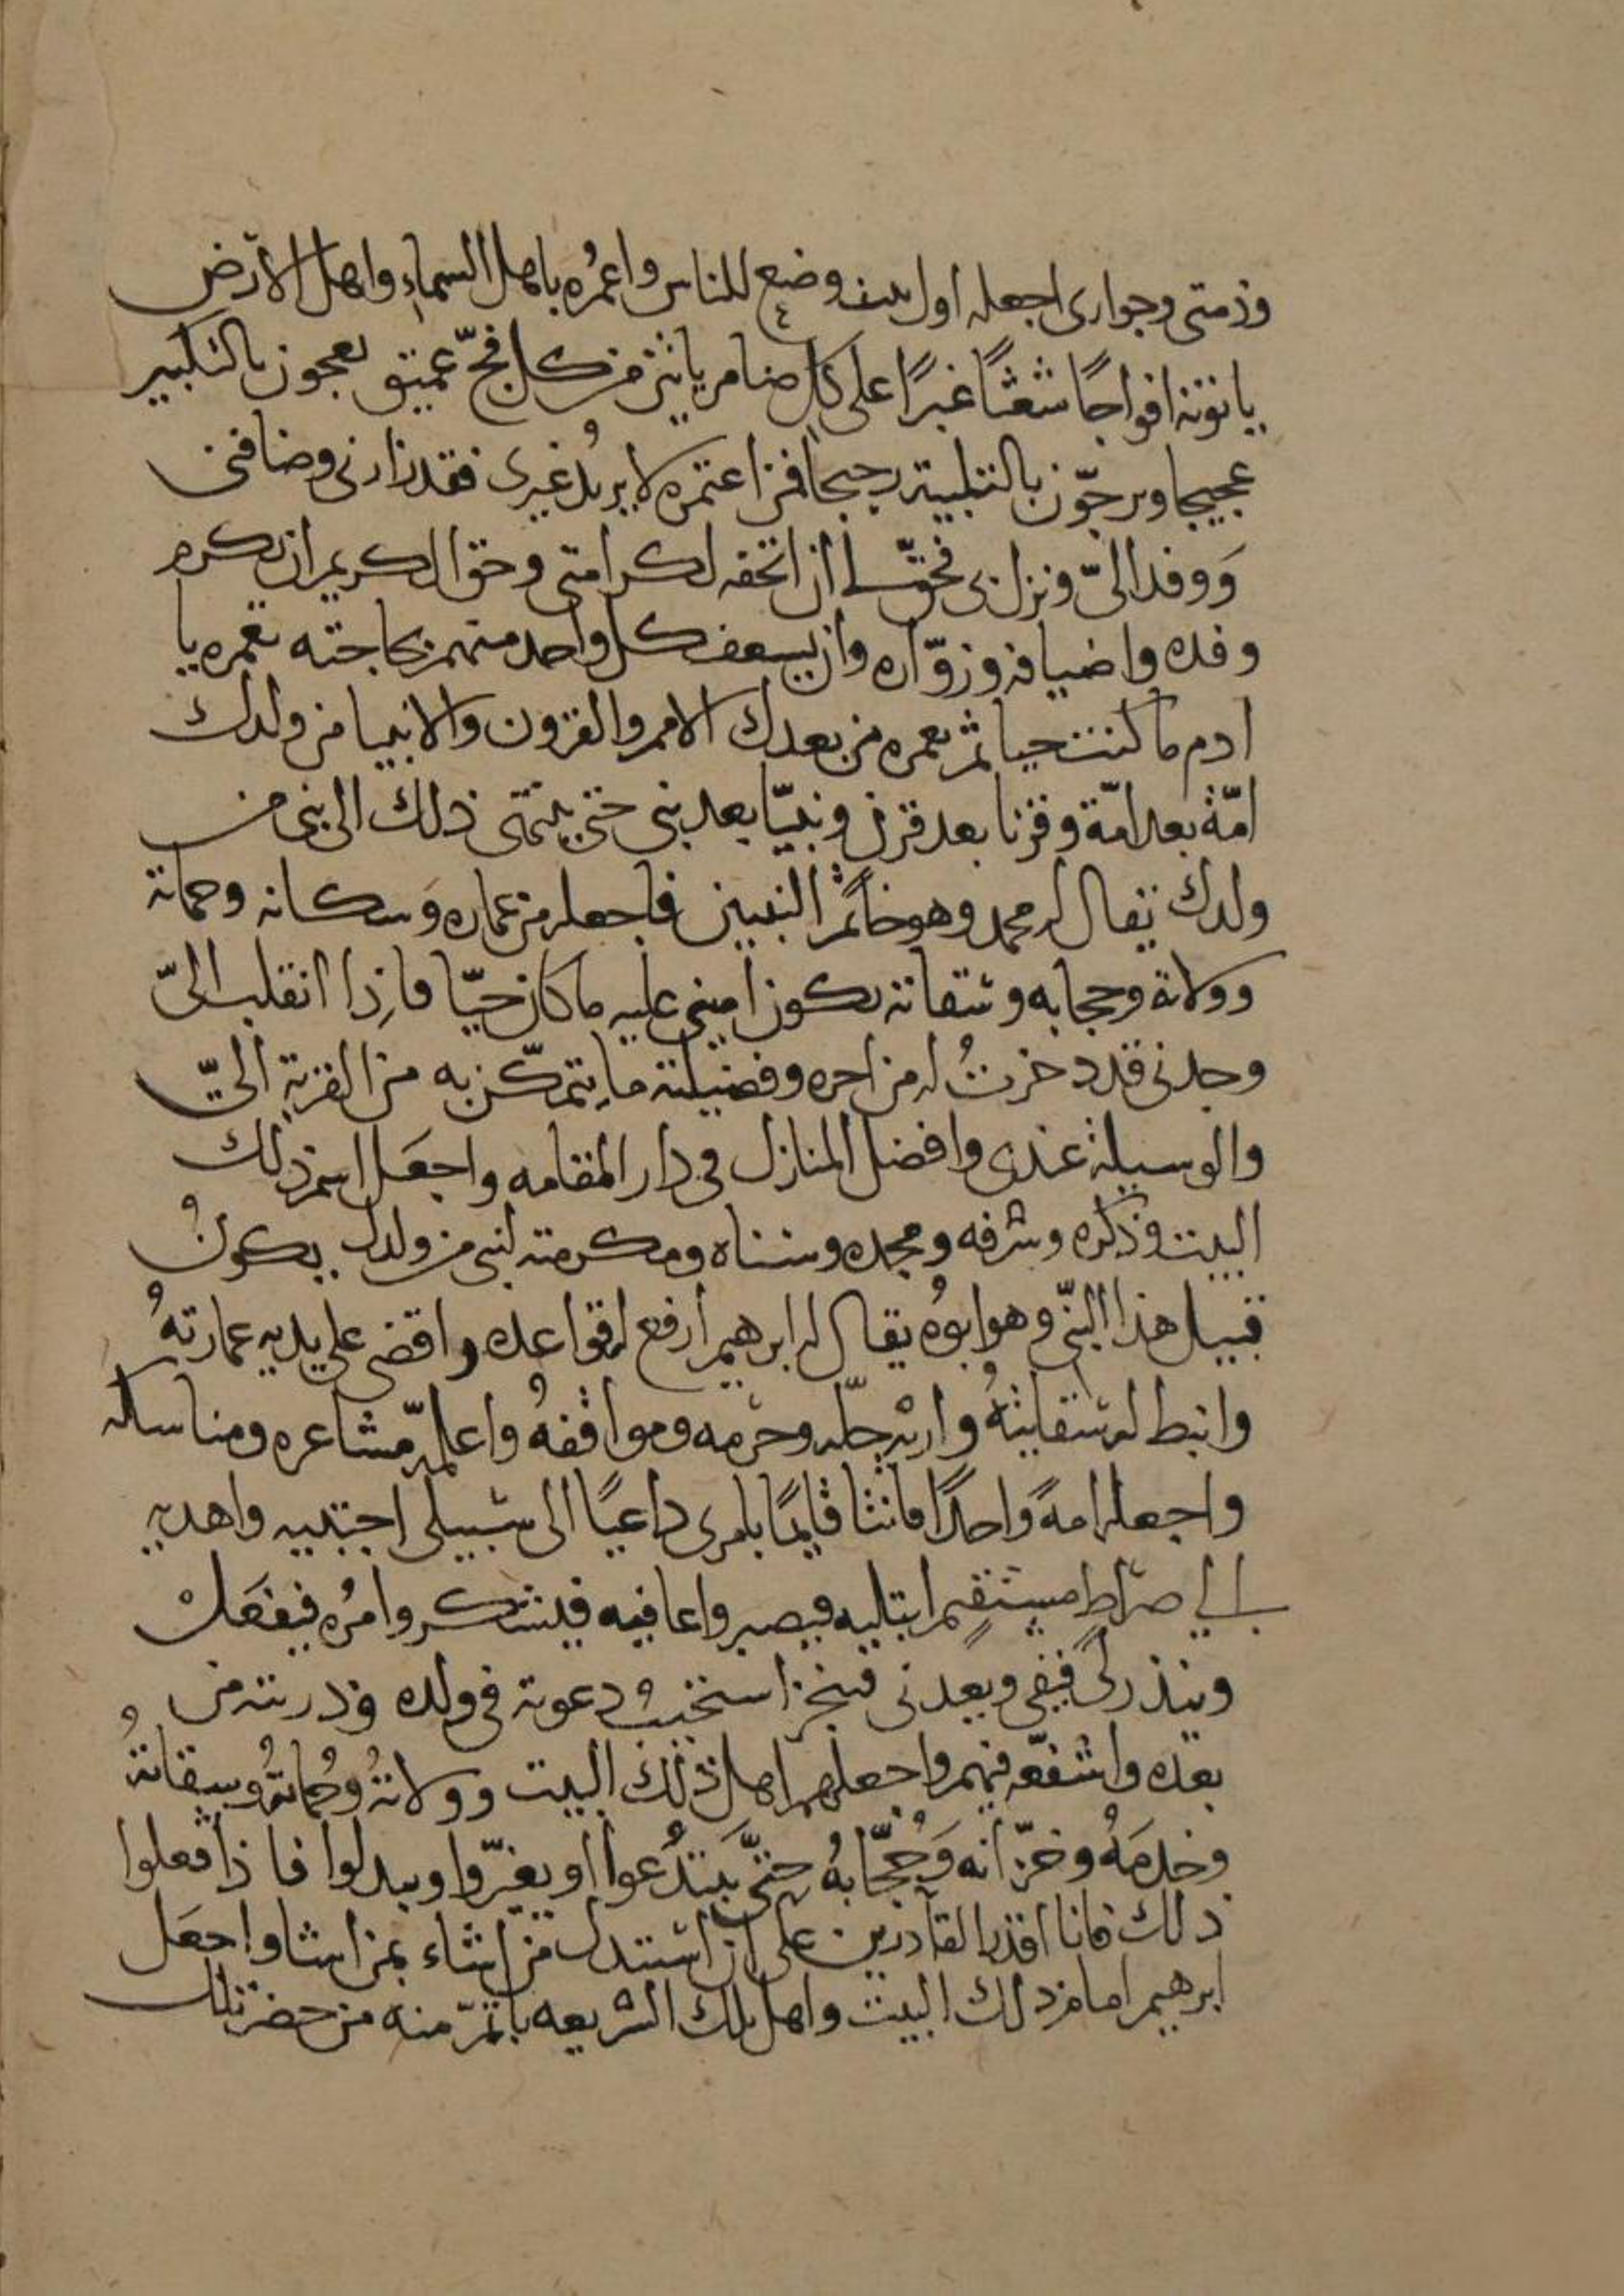 وذمتى وجوارى اجعله اول بيت وضع للناس واعمُره باهل السماء واهل الأرض
ياتونه افواجًا شعثًا غبرًا على كل ضامر ياتين من كل فجّ عميق يعجون بالتكبير
عجيجا ويرجّون بالتلبية رجيجا فمن اعتمره لا يريدُ غيرى فقد زارنى وضافنى
وَوفد الىّ ونزل بى فحقّ لى ان اتحفه لكرامتى وحق الكريم ان يكرم
وفده واضيافه وزوّاره وان يسعف كل واحد منهم بحاجته تعمره يا
ادم ما كنت حيا ثم يعمره من بعدك الامم والقرون والانبيا من ولدك
امّة بعد امّة وقرنا بعد قرن ونبيّا بعد نبى حتى ينتهى ذلك الى نبى من
ولدك يقال له محمد وهو خاتم النبيين فاجعله من عماره وسكانه وحماته
وولاته وحجابه وسقاته يكون امينى عليه ما كان حيّا فاِذا انقلب الىّ
وجدنى قد دخرتُ له من اجره وفضيلته ما يتمكّن به من القربة الىّ
والوسيلة عندى وافضل المنازل فى دار المقامه واجعَل اسم ذلك
البيت وذكره وشرفه ومجده وسناه ومكرمته لنبى من ولدك يكونُ
قبيل هذا النبّى وهو ابوُه يقال له ابرهيم ارفع له قواعده واقضى على يديه عمارتهُ
وانبط له سقايتهُ واريه حلّه وحرمه ومواقفهُ واعلمه مشاعره ومناسكه
واجعله امةً واحدًا قانتا قايمًا بامرى داعيًا الى سبيلى اجتبيه واهديه
الى صراطٍ مستقيمٍ ابتليه فيصبر واعافيه فيشكر وامُره فيفعَل
وينذر لى فيفى ويعدنى فينجز استجيب دعوته فى ولده وذريته من
بعده واشفعّه فيهم واجعلهم اهل ذلك البيت وولاتهُ وحُماتهُ وسقاتهُ
وخدمَهُ وخزّانه وَحُجّابهُ حتىَّ يَبتدُعوا او يغيّروا ويبدلوا فاذا فعلوا
ذلك فانا اقدر القادرين على ان استبدل من اشاء بمن اشا واجعَل
ابرهيم امام ذلك البيت واهل تلك الشريعه ياتمّ منه من حضر تلك